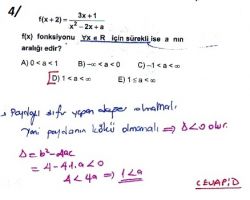 4/
f(x+2) = 3x+1 / x²-2x+a
f(x) fonksiyonu ∀x ∈ R için sürekli ise a nın
aralığı edir?
A) 0 < a < 1 B) -∞ < a < 0 C) -1 < a < ∞
D) 1 < a < ∞ E) 1 ≤ a < ∞
Paydayı sıfır yapan değer olmamalı
Yani paydanın kökü olmamalı ⇒ Δ<0 olur.
Δ = b²-4ac
= 4-4.1.a<0
4<4a ⇒ 1<a
CEVAP: D